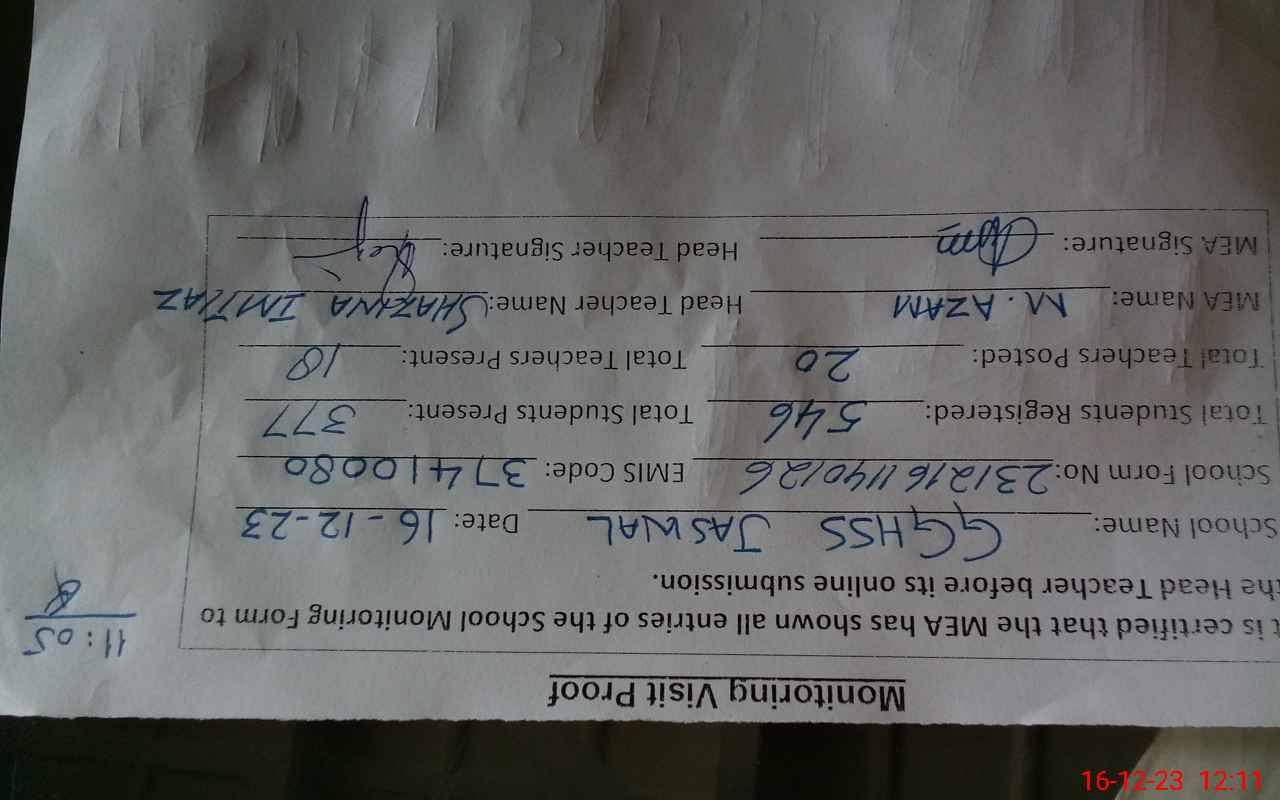 Monitoring Visit Proof
11:05
t is certified that the MEA has shown all entries of the School Monitoring Form to
the Head Teacher before its online submission.
School Name: GGHSS JASWAL Date: 16-12-23
School Form No: 2312161140126 EMIS Code: 37410080
Total Students Registered: 546 Total Students Present: 377
Total Teachers Posted: 20 Total Teachers Present: 18
MEA Name: M. AZAM Head Teacher Name: SHAZINA IMTIAZ
MEA Signature: Head Teacher Signature:
16-12-23 12:11